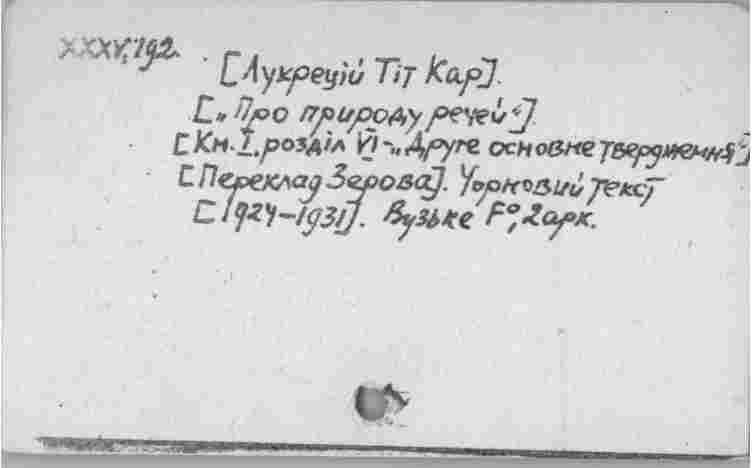 XXXV,192.
[Лукрецій Тіт Кар].
[„Про природу речей“].
[Кн. I. розділ VI - „Друге основне твердження“]
[Переклад Зерова]. Чорновий текст
[1924-1931]. Вузьке F°, 2 арк.